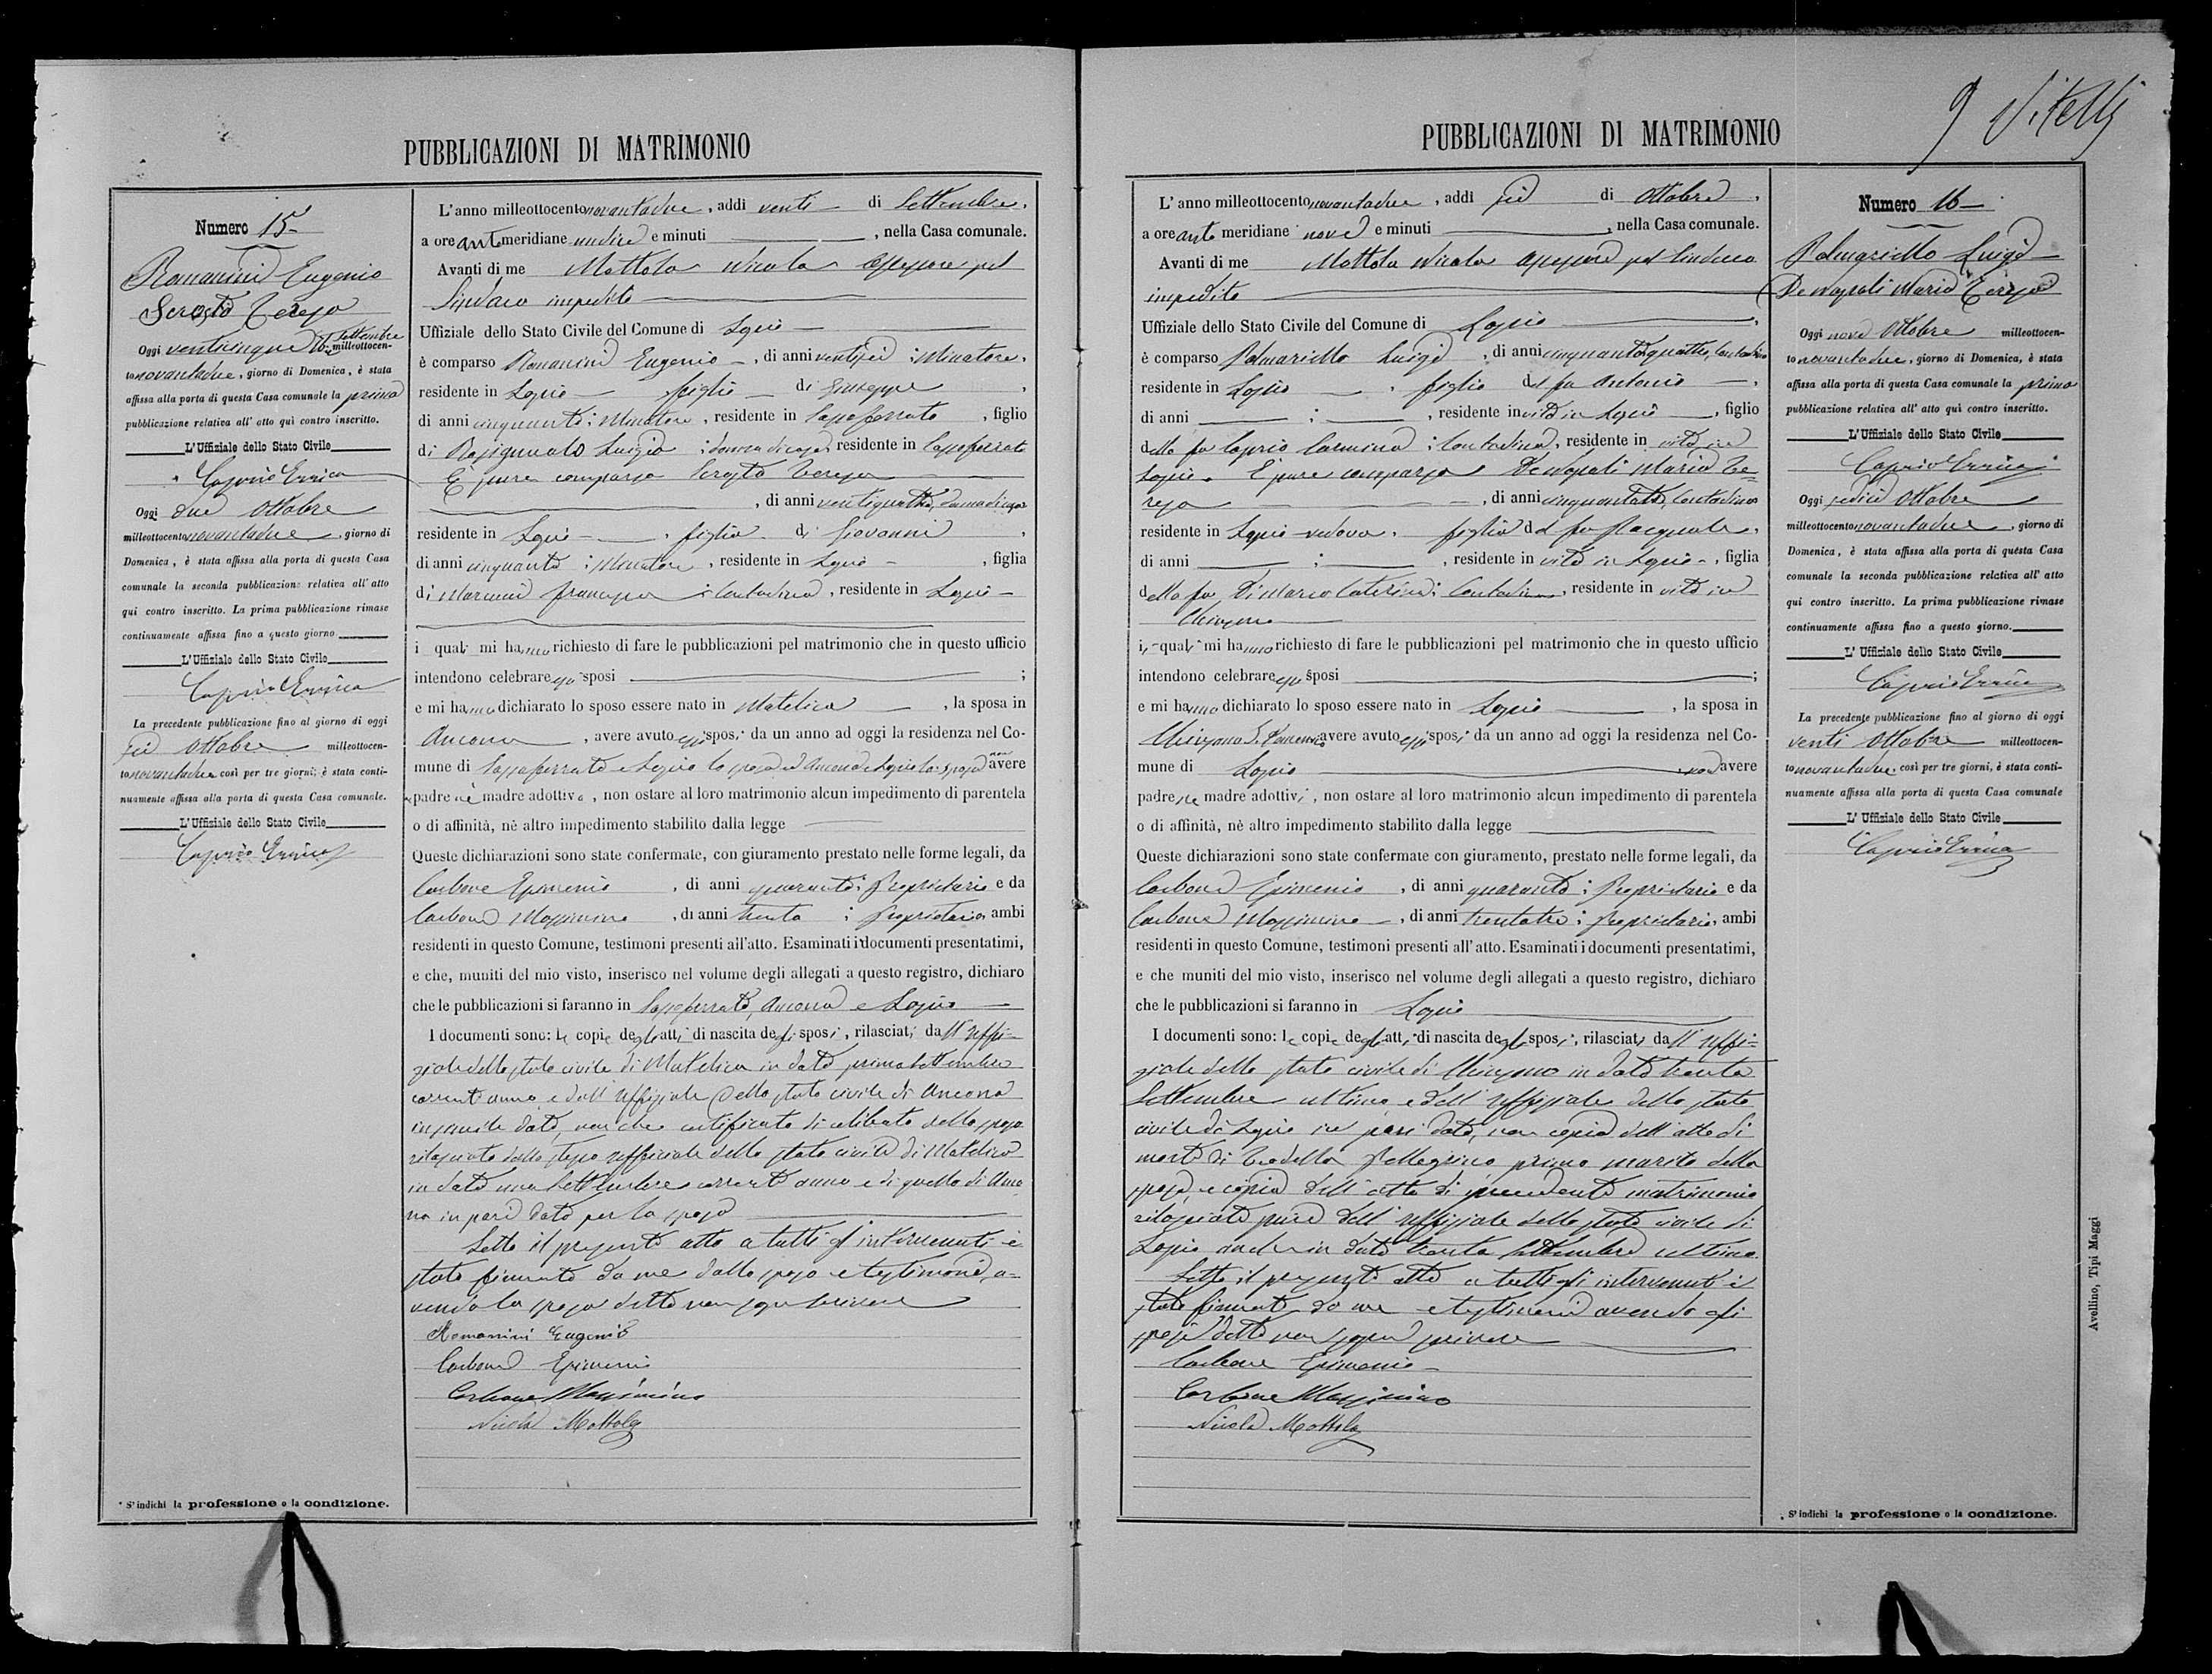 PUBBLICAZIONI DI MATRIMONIO
Numero 15
Romanini Eugenio
Serosto Teresa
Oggi venticinque Settembre milleottocen-
to novantadue, giorno di Domenica, è stata
affissa alla porta di questa Casa comunale la prima
pubblicazione relativa all' atto quì contro inscritto.
L'Uffiziale dello Stato Civile
Caprio Errico
Oggi due Ottobre
milleottocento novantadue, giorno di
Domenica, è stata affissa alla porta di questa Casa
comunale la seconda pubblicazione relativa all' atto
qui contro inscritto. La prima pubblicazione rimase
continuamente affissa fino a questo giorno.
L'Uffiziale dello Stato Civile
Caprio Errico
La precedente pubblicazione fino al giorno di oggi
sei Ottobre milleottocen-
to novantadue così per tre giorni, è stata conti-
nuamente affissa alla porta di questa Casa comunale.
L'Uffiziale dello Stato Civile
Caprio Errico
* S'indichi la professione o la condizione.
L'anno milleottocento novantadue, addì venti di Settembre,
a ore ante meridiane undici e minuti , nella Casa comunale.
Avanti di me Mottola Nicola Assessore pel
Sindaco impedito
Uffiziale dello Stato Civile del Comune di Lapio
è comparso Romanini Eugenio, di anni ventisei; Minatore,
residente in Lapio, figlio di Giuseppe,
di anni cinquanta; Minatore, residente in Sassoferrato, figlio
di Luigia; donna di casa, residente in Sassoferrato
È pure comparsa Teresa
, di anni ventiquattro, donna di casa
residente in Lapio, figlia di Giovanni,
di anni cinquanta; Minatore, residente in Lapio, figlia
di Francesca; Contadina, residente in Lapio
i quali mi hanno richiesto di fare le pubblicazioni pel matrimonio che in questo ufficio
intendono celebrare essi sposi ;
e mi hanno dichiarato lo sposo essere nato in Matelica, la sposa in
Ancona, avere avuto essi sposi da un anno ad oggi la residenza nel Co-
mune di Sassoferrato e Lapio lo sposo ed Ancona e Lapio la sposa non avere
padre nè madre adottivi, non ostare al loro matrimonio alcun impedimento di parentela
o di affinità, nè altro impedimento stabilito dalla legge
Queste dichiarazioni sono state confermate, con giuramento prestato nelle forme legali, da
Carbone Epimenio, di anni quaranta; Proprietario e da
Carbone Massimino, di anni trenta; Proprietario ambi
residenti in questo Comune, testimoni presenti all'atto. Esaminati i documenti presentatimi,
e che, muniti del mio visto, inserisco nel volume degli allegati a questo registro, dichiaro
che le pubblicazioni si faranno in Sassoferrato, Ancona e Lapio
I documenti sono: le copie degli atti di nascita degli sposi, rilasciati dall' uffi-
ziale dello stato civile di Matelica in data primo Settembre
corrente anno, e dall' uffiziale dello stato civile di Ancona
in simile data, non che certificato di celibato dello sposo
rilasciato dallo stesso ufficiale dello stato civile di Matelica
in data uno Settembre corrente anno e di quello di Anco
na in pari data per la sposa
Letto il presente atto a tutti gl' intervenuti è
stato firmato da me dallo sposo e testimoni, a-
vendo la sposa detto non saper scrivere
Romanini Eugenio
Carbone Epimenio
Carbone Massimino
Nicola Mottola
9 Vitelli
PUBBLICAZIONI DI MATRIMONIO
L'anno milleottocento novantadue, addì sei di Ottobre,
a ore ante meridiane nove e minuti , nella Casa comunale.
Avanti di me Mottola Nicola Assessore pel Sindaco
impedito
Uffiziale dello Stato Civile del Comune di Lapio,
è comparso Palmariello Luigi, di anni cinquantaquattro, Contadino
residente in Lapio, figlio del fu Antonio,
di anni ; , residente in vita in Lapio, figlio
della fu Caprio Carmina; Contadina, residente in vita in
Lapio. È pure comparsa De Napoli Maria Te=
resa , di anni cinquantotto, Contadina
residente in Lapio vedova, figlia del fu Pasquale,
di anni ; , residente in vita in Lapio, figlia
della fu Di Marco Caterina; Contadina, residente in vita in
Chiusano
i quali mi hanno richiesto di fare le pubblicazioni pel matrimonio che in questo ufficio
intendono celebrare essi sposi ;
e mi hanno dichiarato lo sposo essere nato in Lapio, la sposa in
Chiusano S. Domenico avere avuto essi sposi da un anno ad oggi la residenza nel Co-
mune di Lapio non avere
padre ne madre adottivi, non ostare al loro matrimonio alcun impedimento di parentela
o di affinità, nè altro impedimento stabilito dalla legge
Queste dichiarazioni sono state confermate con giuramento, prestato nelle forme legali, da
Carbone Epimenio, di anni quaranta; Proprietario e da
Carbone Massimino, di anni trentatre; Proprietario ambi
residenti in questo Comune, testimoni presenti all' atto. Esaminati i documenti presentatimi,
e che muniti del mio visto, inserisco nel volume degli allegati a questo registro, dichiaro
che le pubblicazioni si faranno in Lapio
I documenti sono: le copie degli atti di nascita degli sposi, rilasciati dall' uffi=
ziale dello stato civile di Chiusano in data trenta
Settembre ultimo e dell' uffiziale dello stato
civile di Lapio in pari data, non copia dell' atto di
morte di Pellegrino, primo marito della
sposa, e copia dell' atto di precedente matrimonio
rilasciato pure dall' uffiziale dello stato civile di
Lapio anche in data trenta Settembre ultimo.
Letto il presente atto a tutti gli intervenuti è
stato firmato da me e testimoni avendo gli
sposi detto non saper scrivere
Carbone Epimenio
Carbone Massimino
Nicola Mottola
Numero 16
Palmariello Luigi
De Napoli Maria Teresa
Oggi nove Ottobre milleottocen-
to novantadue, giorno di Domenica, è stata
affissa alla porta di questa Casa comunale la prima
pubblicazione relativa all' atto quì contro inscritto.
L'Uffiziale dello Stato Civile
Caprio Errico
Oggi sedici Ottobre
milleottocento novantadue, giorno di
Domenica, è stata affissa alla porta di questa Casa
comunale la seconda pubblicazione relativa all' atto
qui contro inscritto. La prima pubblicazione rimase
continuamente affissa fino a questo giorno.
L' Uffiziale dello Stato Civile
Caprio Errico
La precedente pubblicazione fino al giorno di oggi
venti Ottobre milleottocen-
to novantadue, così per tre giorni, è stata conti-
nuamente affissa alla porta di questa Casa comunale
L' Uffiziale dello Stato Civile
Caprio Errico
* S'indichi la professione o la condizione.
Avellino, Tipi Maggi